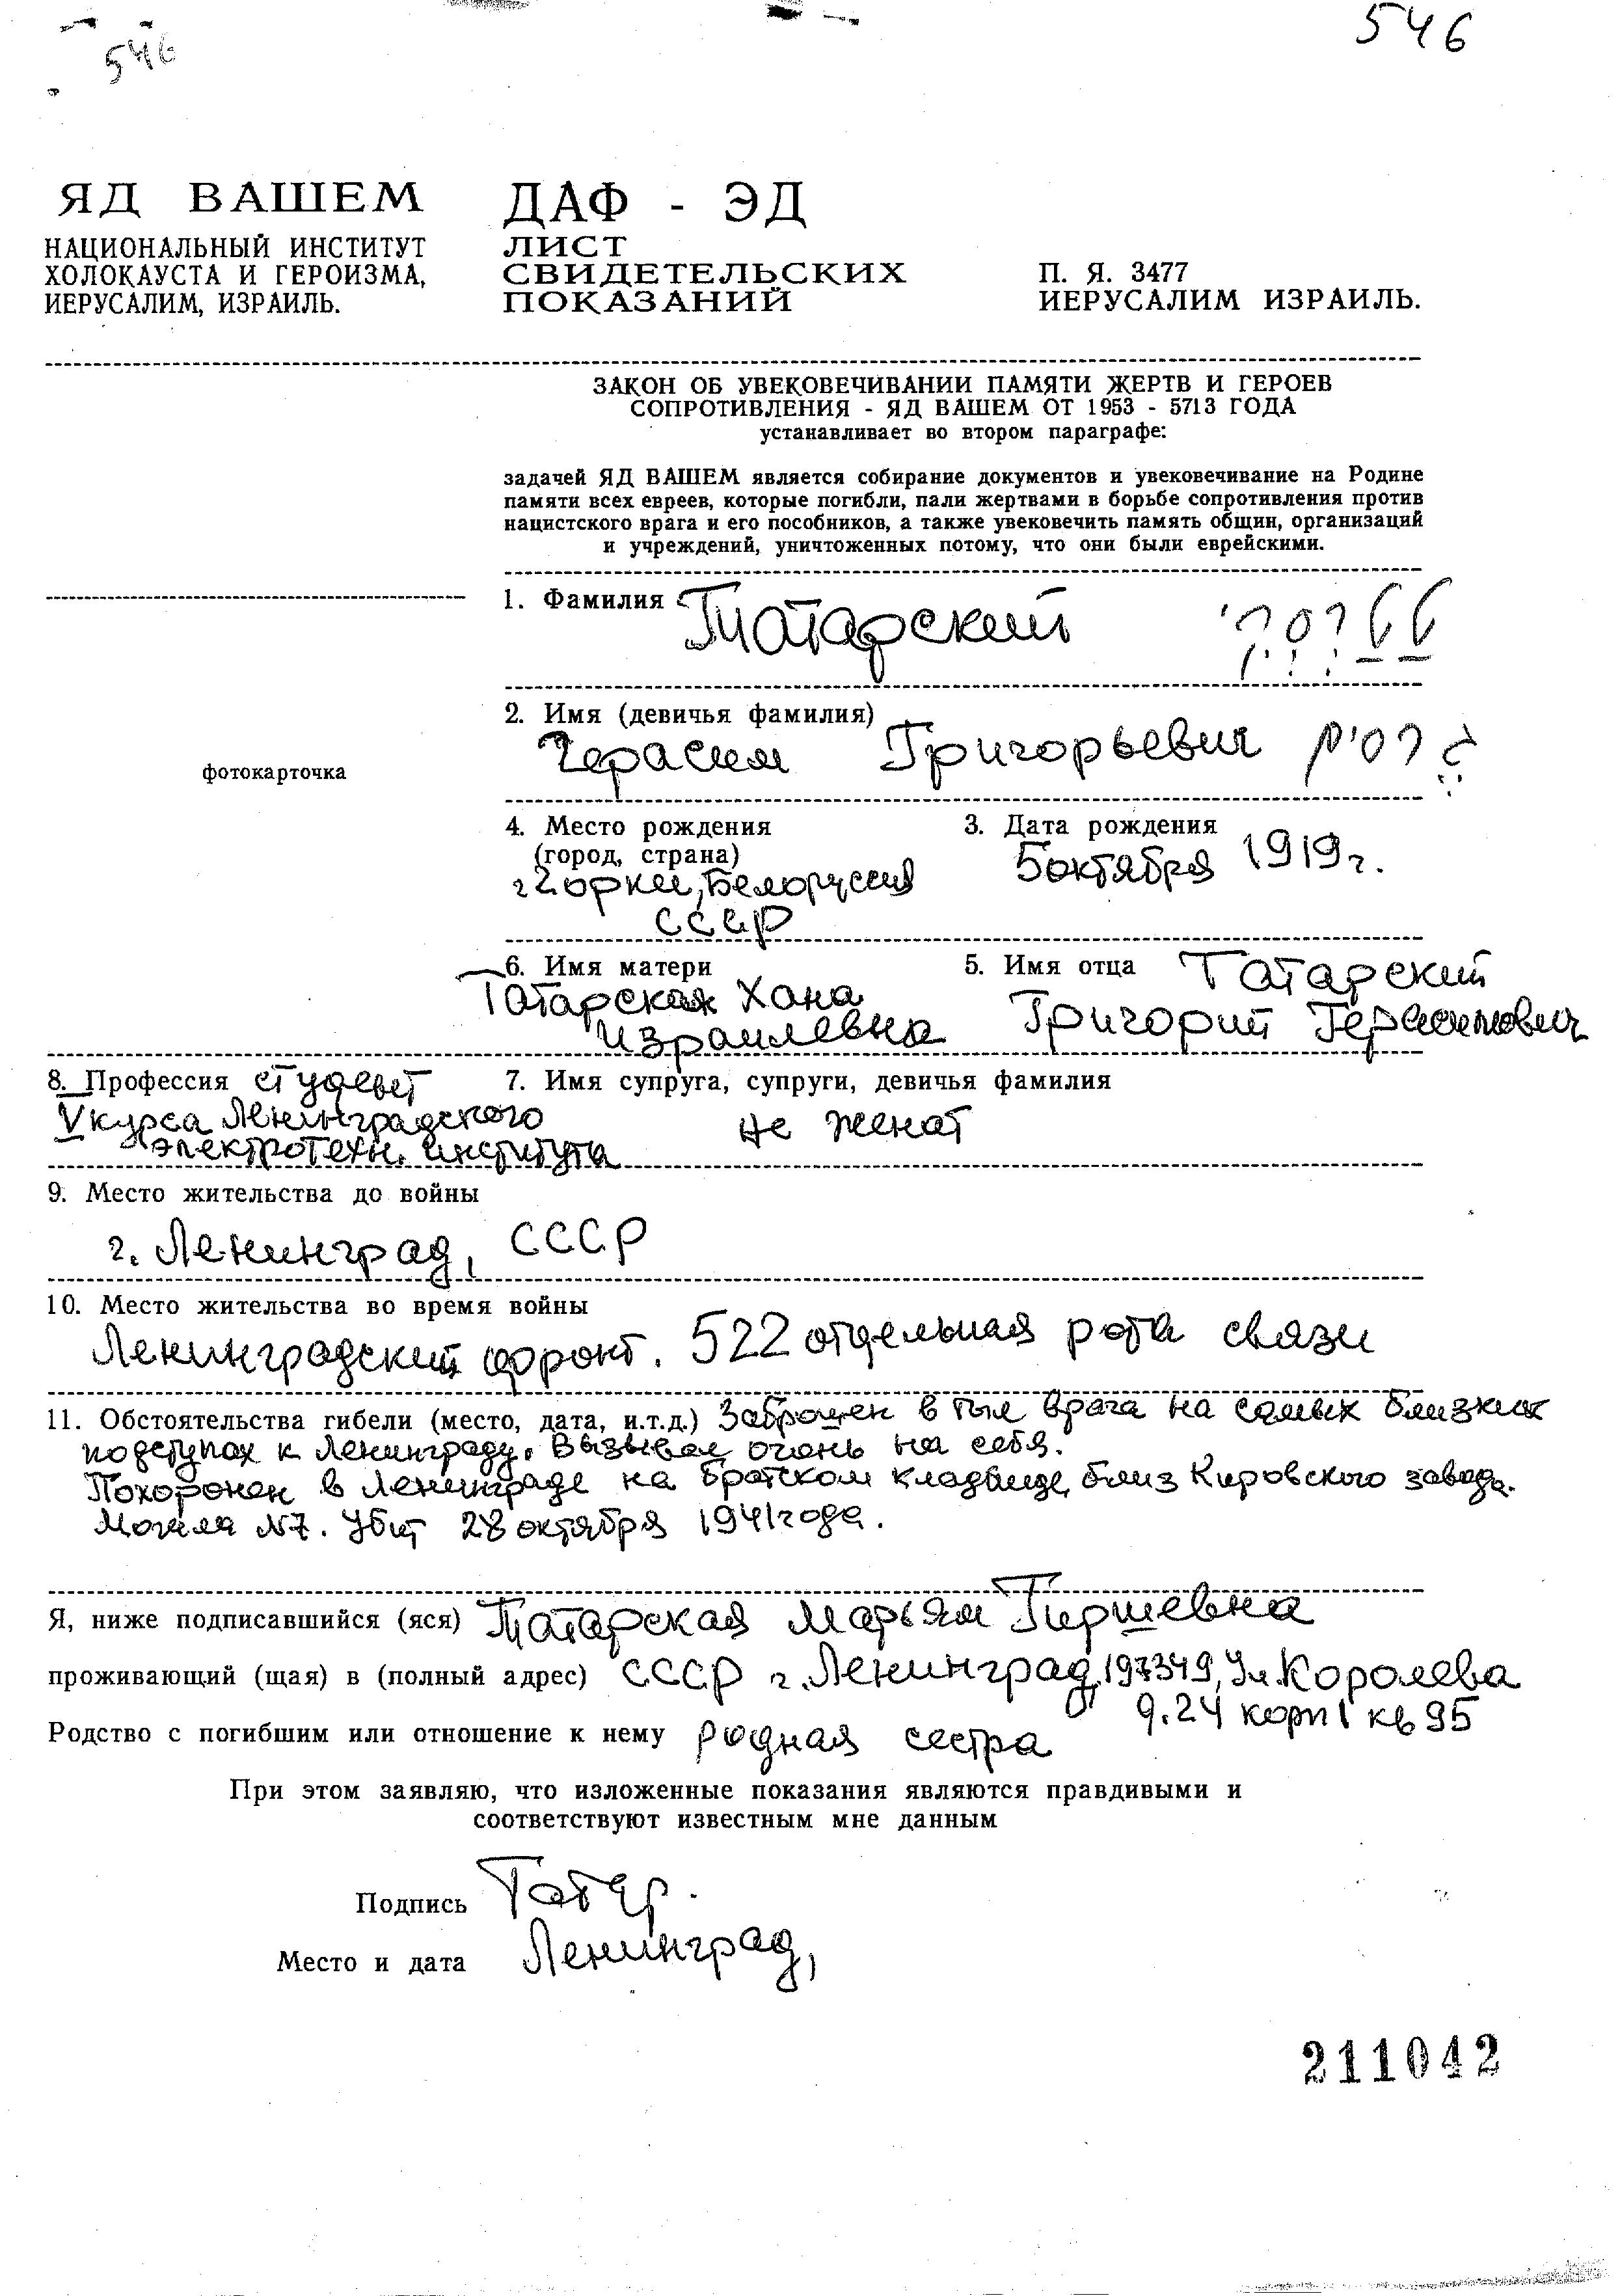 546
546
ЯД ВАШЕМ
НАЦИОНАЛЬНЫЙ ИНСТИТУТ
ХОЛОКАУСТА И ГЕРОИЗМА,
ИЕРУСАЛИМ, ИЗРАИЛЬ.
ДАФ - ЭД
ЛИСТ
СВИДЕТЕЛЬСКИХ
ПОКАЗАНИЙ
П. Я. 3477
ИЕРУСАЛИМ ИЗРАИЛЬ.
ЗАКОН ОБ УВЕКОВЕЧИВАНИИ ПАМЯТИ ЖЕРТВ И ГЕРОЕВ
СОПРОТИВЛЕНИЯ - ЯД ВАШЕМ ОТ 1953 - 5713 ГОДА
устанавливает во втором параграфе:
задачей ЯД ВАШЕМ является собирание документов и увековечивание на Родине
памяти всех евреев, которые погибли, пали жертвами в борьбе сопротивления против
нацистского врага и его пособников, а также увековечить память общин, организаций
и учреждений, уничтоженных потому, что они были еврейскими.
фотокарточка
1. Фамилия
Татарский
2. Имя (девичья фамилия)
Герасим Григорьевич
4. Место рождения
(город, страна)
г Горки, Белоруссия
СССР
3. Дата рождения
5 октября 1919 г.
6. Имя матери
Татарская Хана
Израилевна
5. Имя отца Татарский
Григорий Герасимович
8. Профессия студент
V курса Ленинградского
электротехн. института
7. Имя супруга, супруги, девичья фамилия
не женат
9. Место жительства до войны
г. Ленинград, СССР
10. Место жительства во время войны
Ленинградский фронт. 522 отдельная рота связи
11. Обстоятельства гибели (место, дата, и.т.д.) Заброшен в тыл врага на самых близких
подступах к Ленинграду. Вызывал огонь на себя.
Похоронен в Ленинграде на братском кладбище, близ Кировского завода.
Могила №7. Убит 28 октября 1941 года.
Я, ниже подписавшийся (яся) Татарская Марьям Гиршевна
проживающий (щая) в (полный адрес) СССР г. Ленинград, 197349, ул. Королева
д. 24 корп 1 кв 95
Родство с погибшим или отношение к нему родная сестра
При этом заявляю, что изложенные показания являются правдивыми и
соответствуют известным мне данным
Подпись Татар.
Место и дата Ленинград,
211042